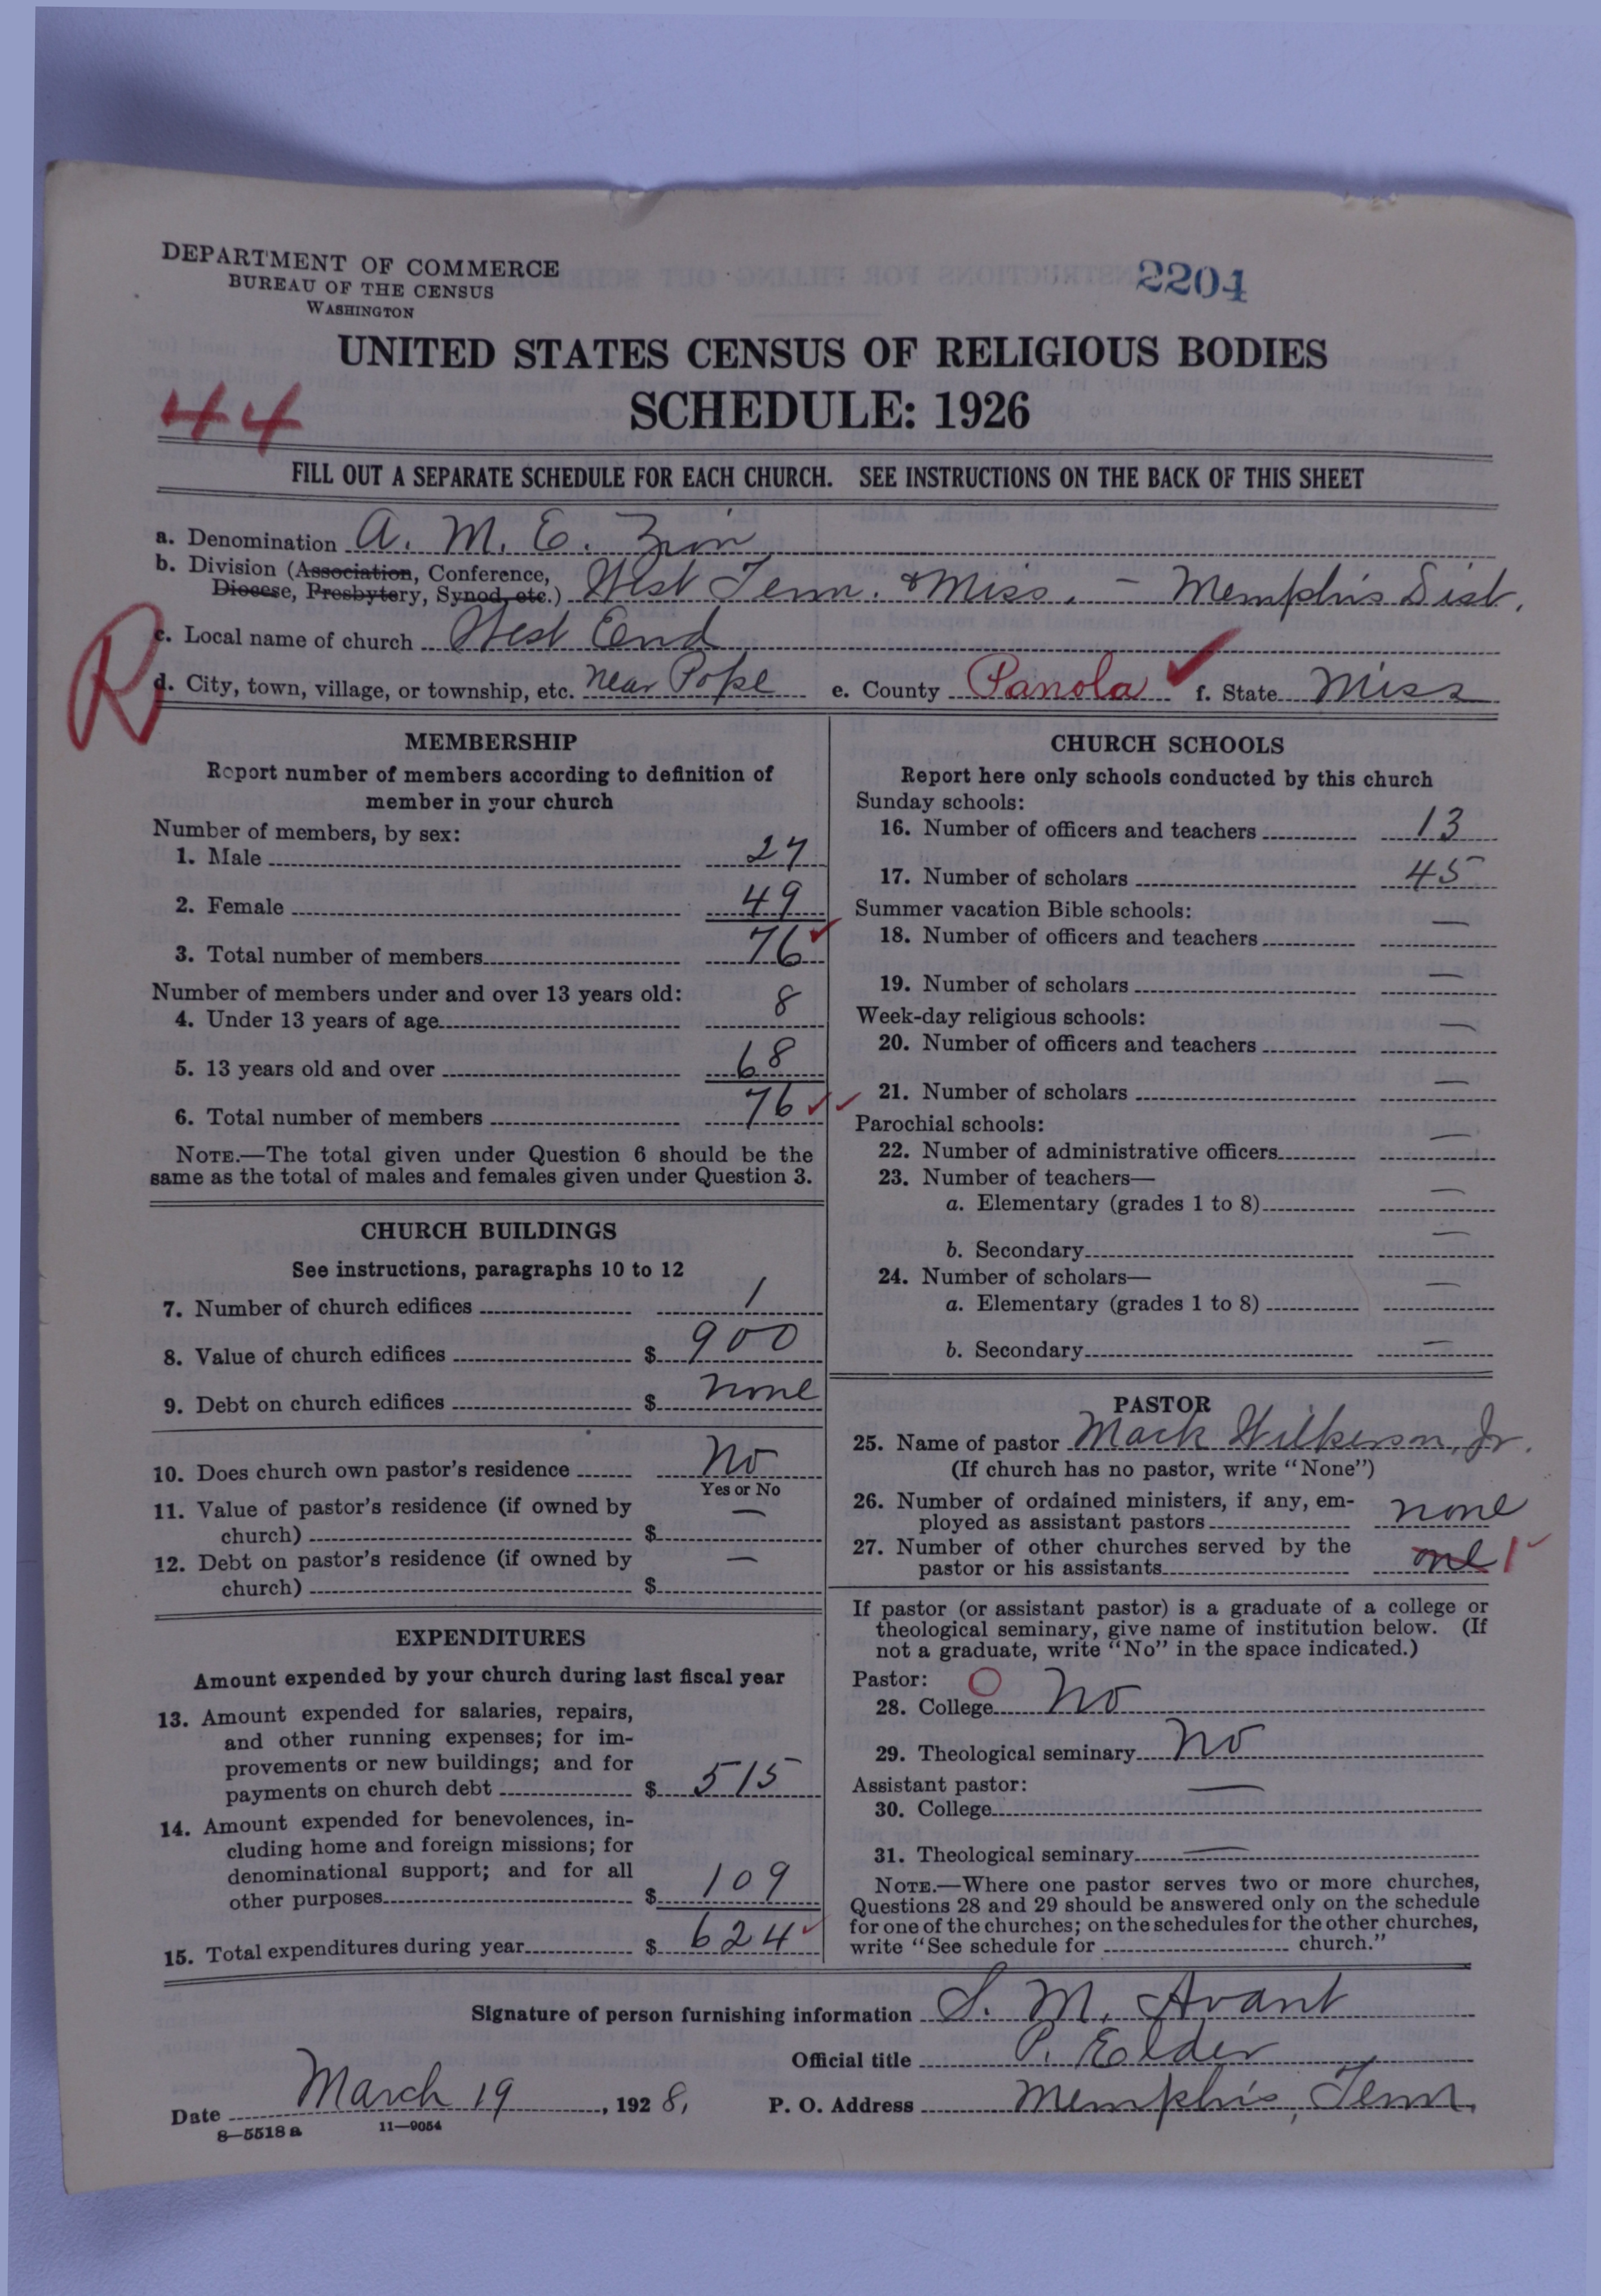 DEPARTMENT OF COMMERCE
BUREAU OF THE CENSUS
WASHINGTON
2204
UNITED STATES CENSUS OF RELIGIOUS BODIES
SCHEDULE: 1926
44
FILL OUT A SEPARATE SCHEDULE FOR EACH CHURCH. SEE INSTRUCTIONS ON THE BACK OF THIS SHEET
a. Denomination A. M. E. Zion
b. Division (Association, Conference,
Diocese, Presbytery, Synod, etc.) West Tenn. & Miss. – Memphis Dist.
R
c. Local name of church West End
d. City, town, village, or township, etc. near Pope e. County Panola ✓ f. State Miss
MEMBERSHIP
Report number of members according to definition of
member in your church
Number of members, by sex:
1. Male 27
2. Female 49
3. Total number of members 76 ✓
Number of members under and over 13 years old:
4. Under 13 years of age 8
5. 13 years old and over 68
6. Total number of members 76 ✓ ✓
NOTE.—The total given under Question 6 should be the
same as the total of males and females given under Question 3.
CHURCH BUILDINGS
See instructions, paragraphs 10 to 12
7. Number of church edifices 1
8. Value of church edifices $ 900
9. Debt on church edifices $ none
10. Does church own pastor's residence No
Yes or No
11. Value of pastor's residence (if owned by
church) $ —
12. Debt on pastor's residence (if owned by
church) $ —
EXPENDITURES
Amount expended by your church during last fiscal year
13. Amount expended for salaries, repairs,
and other running expenses; for im-
provements or new buildings; and for
payments on church debt $ 515
14. Amount expended for benevolences, in-
cluding home and foreign missions; for
denominational support; and for all
other purposes $ 109
15. Total expenditures during year $ 624 ✓
CHURCH SCHOOLS
Report here only schools conducted by this church
Sunday schools:
16. Number of officers and teachers 13
17. Number of scholars 45
Summer vacation Bible schools:
18. Number of officers and teachers —
19. Number of scholars —
Week-day religious schools:
20. Number of officers and teachers —
21. Number of scholars —
Parochial schools:
22. Number of administrative officers —
23. Number of teachers—
a. Elementary (grades 1 to 8) —
b. Secondary —
24. Number of scholars—
a. Elementary (grades 1 to 8) —
b. Secondary —
PASTOR
25. Name of pastor Mack Wilkerson, Jr.
(If church has no pastor, write "None")
26. Number of ordained ministers, if any, em-
ployed as assistant pastors none
27. Number of other churches served by the
pastor or his assistants one 1 ✓
If pastor (or assistant pastor) is a graduate of a college or
theological seminary, give name of institution below. (If
not a graduate, write "No" in the space indicated.)
Pastor: O
28. College No
29. Theological seminary No
Assistant pastor:
30. College —
31. Theological seminary —
NOTE.—Where one pastor serves two or more churches,
Questions 28 and 29 should be answered only on the schedule
for one of the churches; on the schedules for the other churches,
write "See schedule for church."
Signature of person furnishing information S. M. Avant
Official title P. Elder
Date March 19, 1928, P. O. Address Memphis, Tenn.
8—5518 a 11—9054